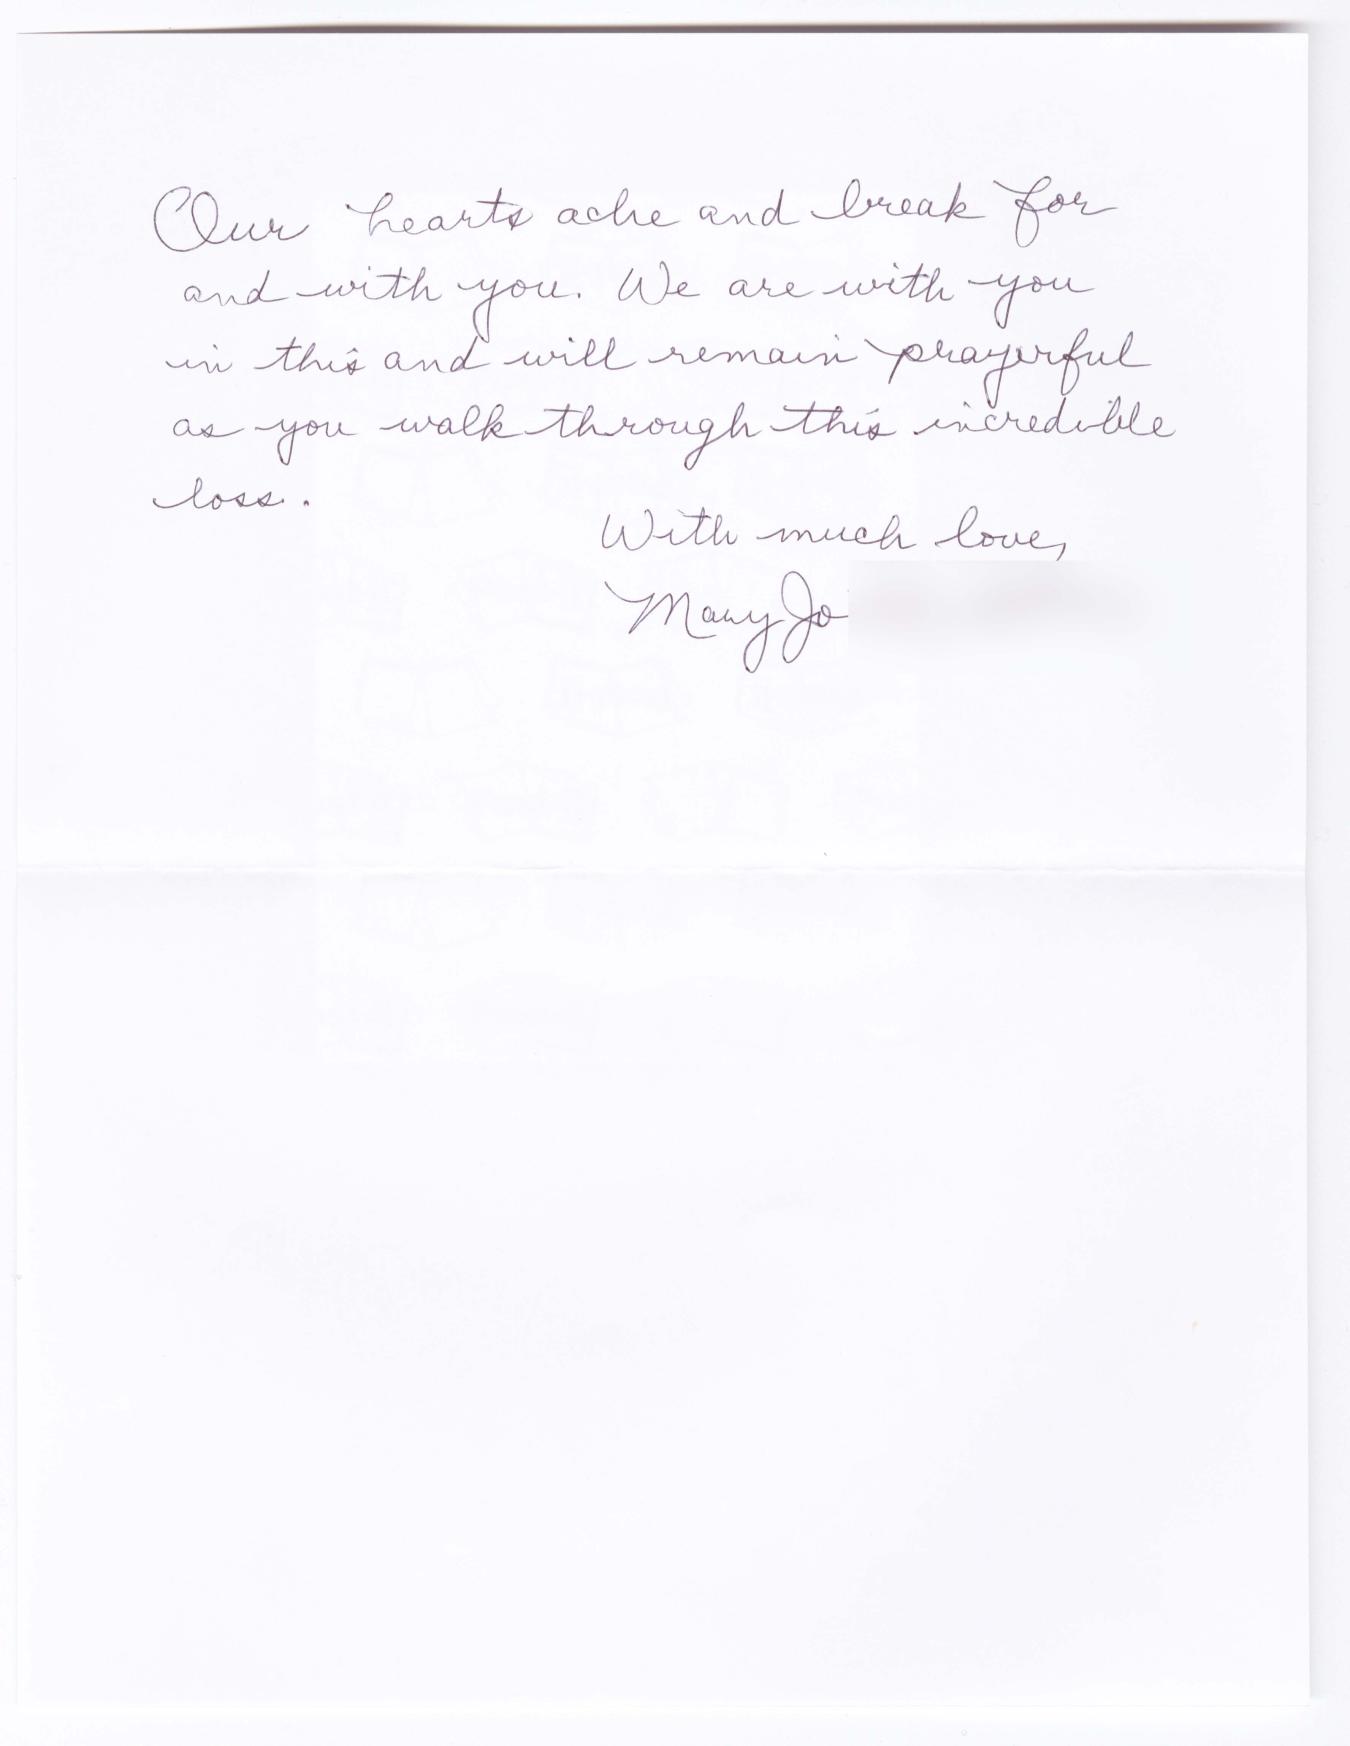 Our hearts ache and break for
and with you. We are with you
in this and will remain prayerful
as you walk through this incredible
loss.
With much love,
Mary Jo